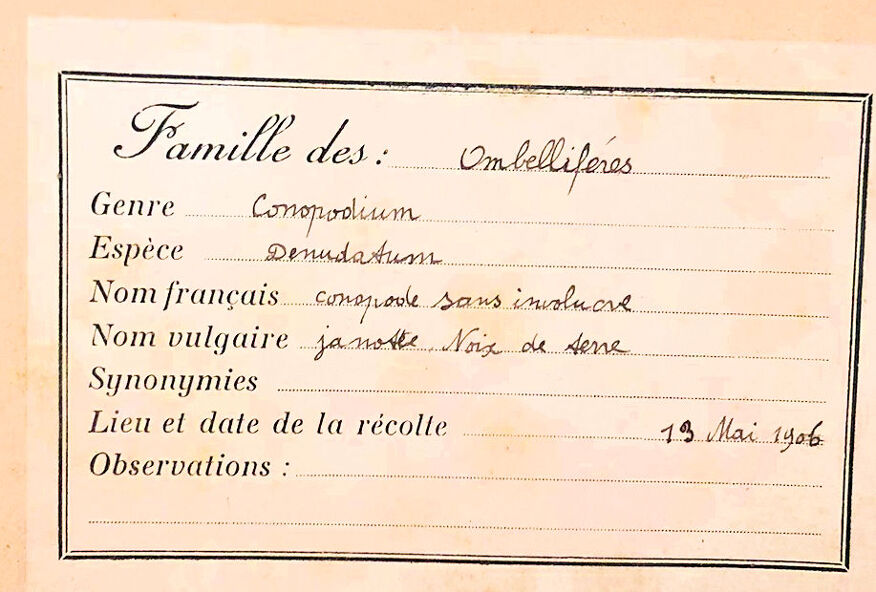 Famille des : Ombelliféres
Genre Conopodium
Espèce Denudatum
Nom français conopode sans involucre
Nom vulgaire janotte. Noix de terre
Synonymies
Lieu et date de la récolte 13 Mai 1906
Observations :